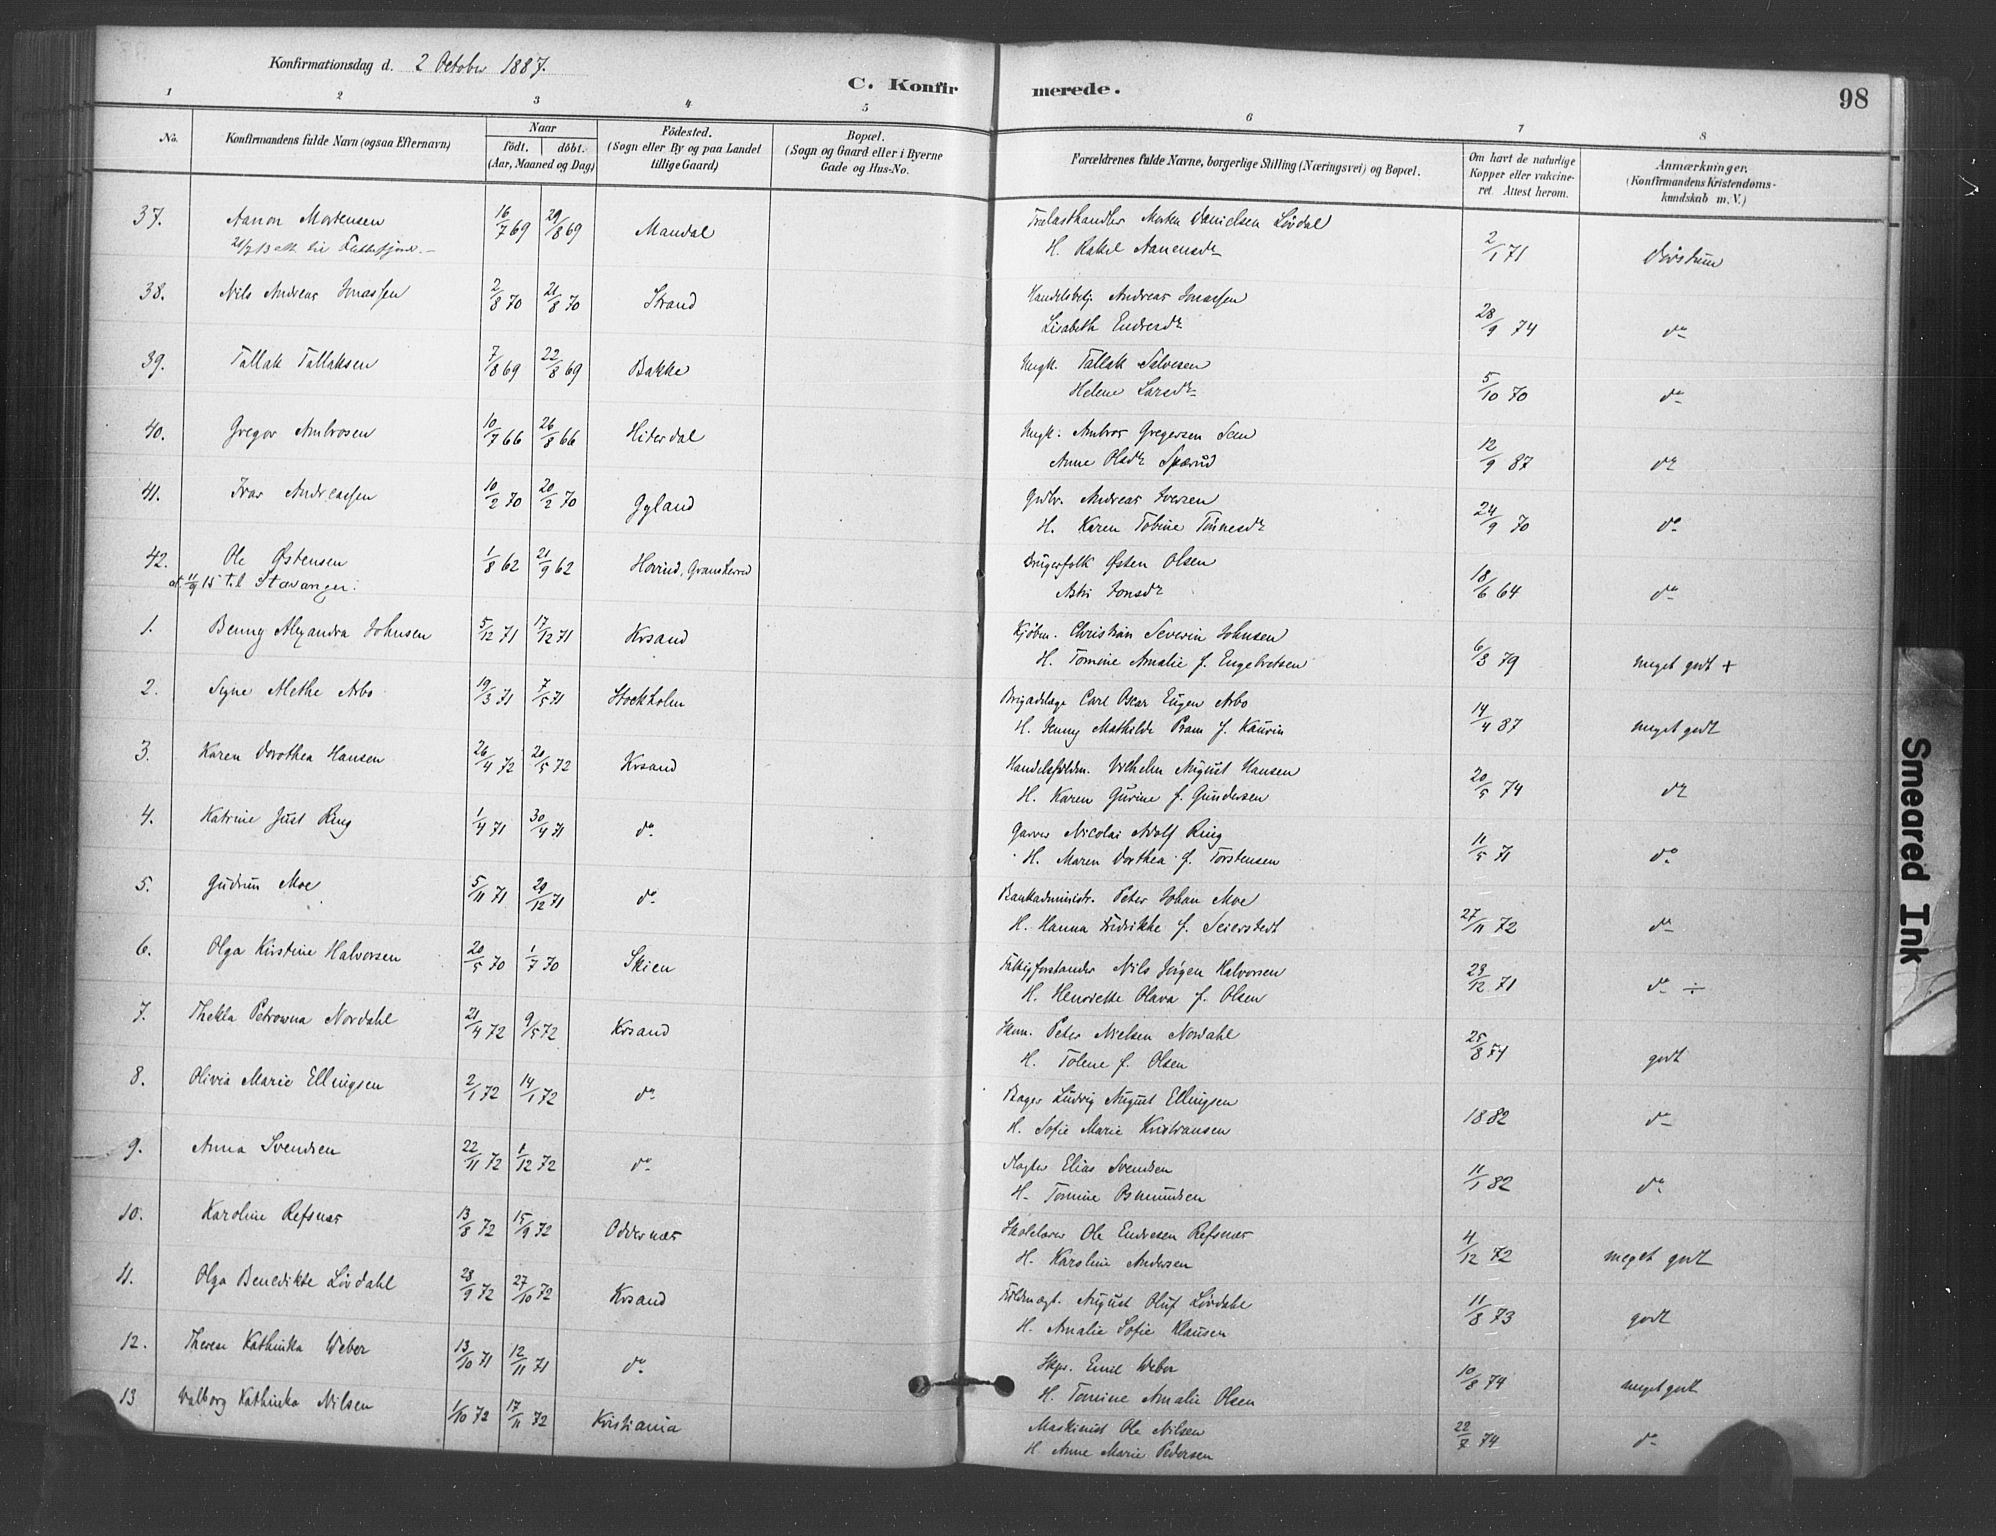 Konfirmationsdag d. 2 October 1887.
C. Konfir merede. 98
1 2 3 4 5 6 7 8
No.
Konfirmandens fulde Navn (ogsaa Efternavn)
Naar
födt. döbt.
(Aar, Maaned og Dag)
Födested.
(Sogn eller By og paa Landet
tillige Gaard)
Bopæl.
(Sogn og Gaard eller i Byerne
Gade og Hus-No.
Forældrenes fulde Navne, borgerlige Stilling (Næringsvei) og Bopæl.
Om havt de naturlige
Kopper eller vakcine-
ret. Attest herom.
Anmærkninger.
(Konfirmandens Kristendoms-
kundskab m. V.)
37. Aanon Mortensen 16/7 69 29/8 69 Mandal Trælasthandler Morten Danielsen Lövdal
H. Rakel Aanensdr 2/1 71
38. Nils Andreas Jonassen 2/8 70 21/8 70 Strand Handelsbetj. Andreas Jonassen
Lisabeth Endresdr 28/9 74 do
39. Tallak Tallaksen 7/8 69 22/8 69 Bakke Ungk. Tallak Salvesen
Helene Larsdr 5/10 70 do
40. Gregor Ambrosen 10/7 66 26/8 66 Hiterdal Ungk. Ambros Gregersen Sem
Anne Olsdr Spærud 12/9 87 do
41. Ivar Andreassen 10/2 70 20/2 70 Gyland Grdbr. Andreas Iversen
H. Karen Tobine Tönnesdr 24/9 70 do
42. Ole Østensen 1/8 62 21/9 62 Hovind, Gransherred Brugerfolk Østen Olsen
at. 11/9 15 til Stavanger. Aslri Jonsdr 18/6 64 do
1. Benny Alexandra Johnsen 5/12 71 17/12 71 Krsand Kjöbm. Christian Severin Johnsen
H. Tomine Amalie f. Engebretsen 6/3 79 meget godt +
2. Signe Alethe Arbo 19/3 71 7/5 71 Stockholm Brigadelæge Carl Oscar Eugen Arbo
H. Jenny Mathilde Pram f. Kaurin 14/4 87 meget godt
3. Karen Dorothea Hansen 26/4 72 20/5 72 Krsand Handelsfuldm. Vilhelm August Hansen
H. Karen Gurine f. Gundersen 20/5 74 do
4. Katrine Just Ring 1/4 71 30/4 71 do Garver Nicolai Adolf Ring
H. Maren Dorthea f. Torstensen 11/5 71 do
5. Gudrun Moe 5/11 71 29/12 71 do Bankadministr. Peter Johan Moe
H. Hanna Fredrikke f. Seierstedt 27/11 72 do
6. Olga Kirstine Halvorsen 20/5 70 1/7 70 Skien Fattigforstander Nils Jörgen Halvorsen
H. Henriette Olava f. Olsen 23/12 71 do ÷
7. Thekla Petrowna Nordahl 21/4 72 9/5 72 Krsand Skom. Peter Nielsen Nordahl
H. Tolene f. Olsen 25/8 74 godt
8. Olivia Marie Ellingsen 2/1 72 14/1 72 do Bager Ludvig August Ellingsen
H. Sofie Marie Kristiansen 1882 do
9. Anna Svendsen 22/11 72 1/12 72 do Slagter Elias Svendsen
H. Tomine Osmundsen 11/1 82 do
10. Karoline Refsnæs 13/8 72 15/9 72 Oddernæs Skolelærer Ole Endresen Refsnæs
H. Karoline Andersen 4/12 72 meget godt
11. Olga Benedikte Lövdahl 28/9 72 27/10 72 Krsand Fuldmægt. August Oluf Lövdahl
H. Amalie Sofie Klausen 11/8 73 godt
12. Therese Kathinka Weber 13/10 71 12/11 71 do Skpr. Emil Weber
H. Tomine Amalie Olsen 10/8 74 meget godt
13 Valborg Kathinka Nilsen 1/10 72 17/11 72 Kristiania Maskinist Ole Nilsen
H. Anne Marie Pedersen 22/7 74 do
Smeared Ink